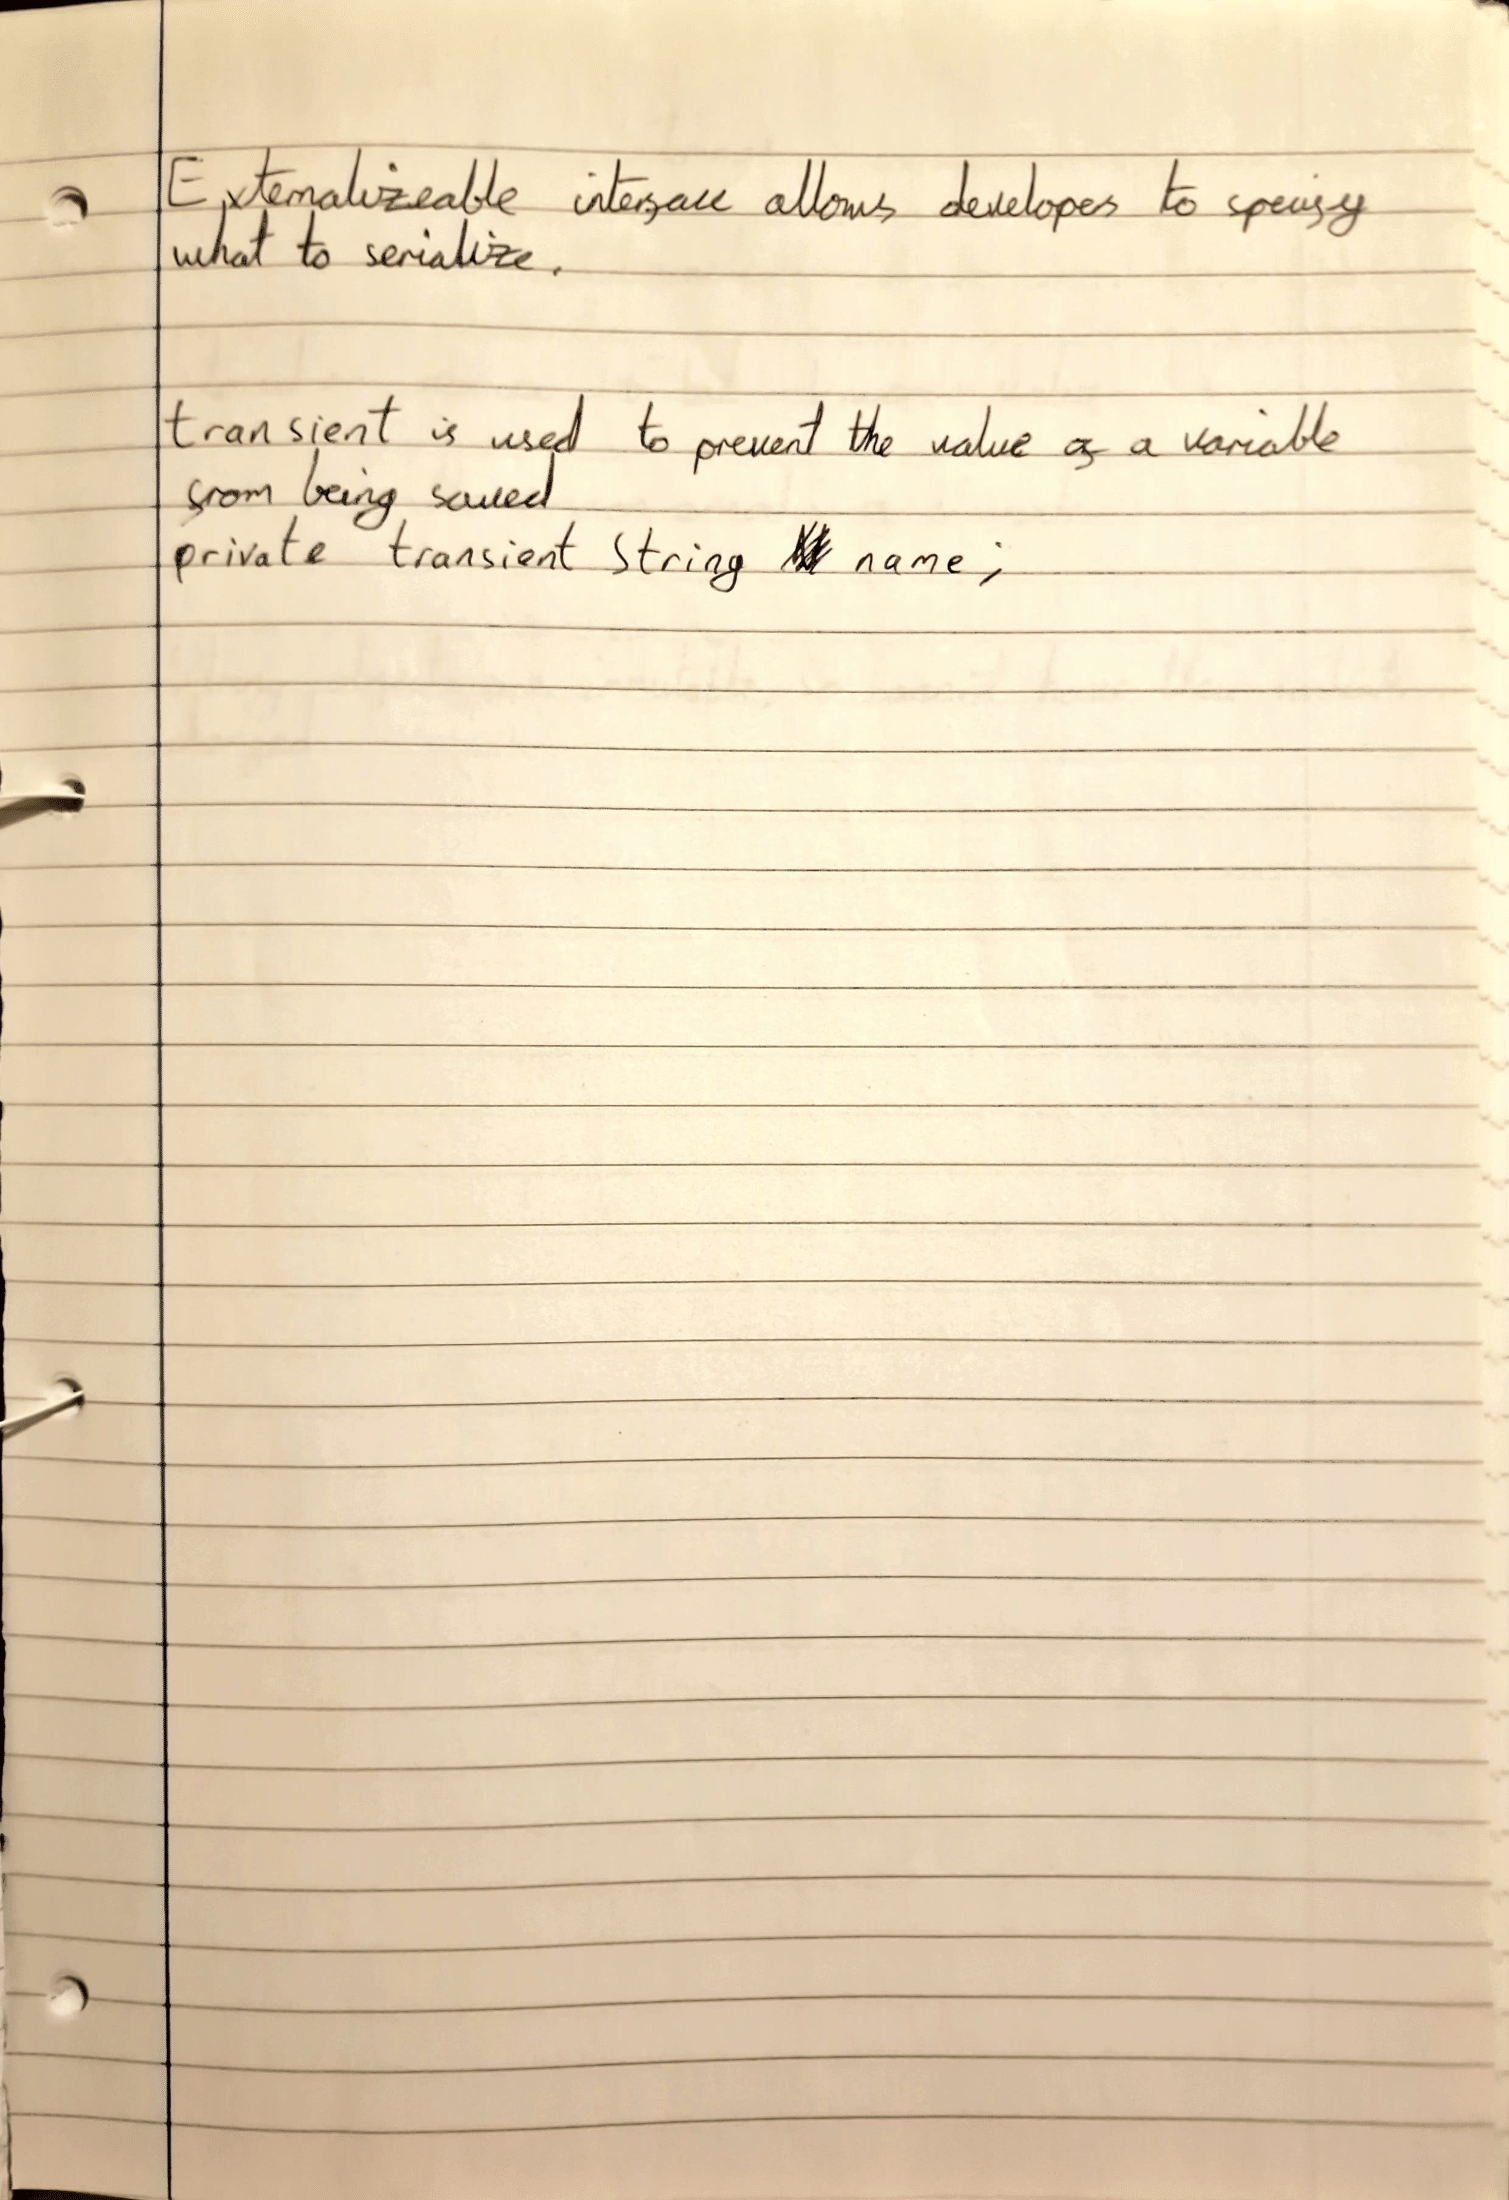 Externalizeable interface allows developes to specify
what to serialize.
transient is used to prevent the value of a variable
from being saved
private transient String name;